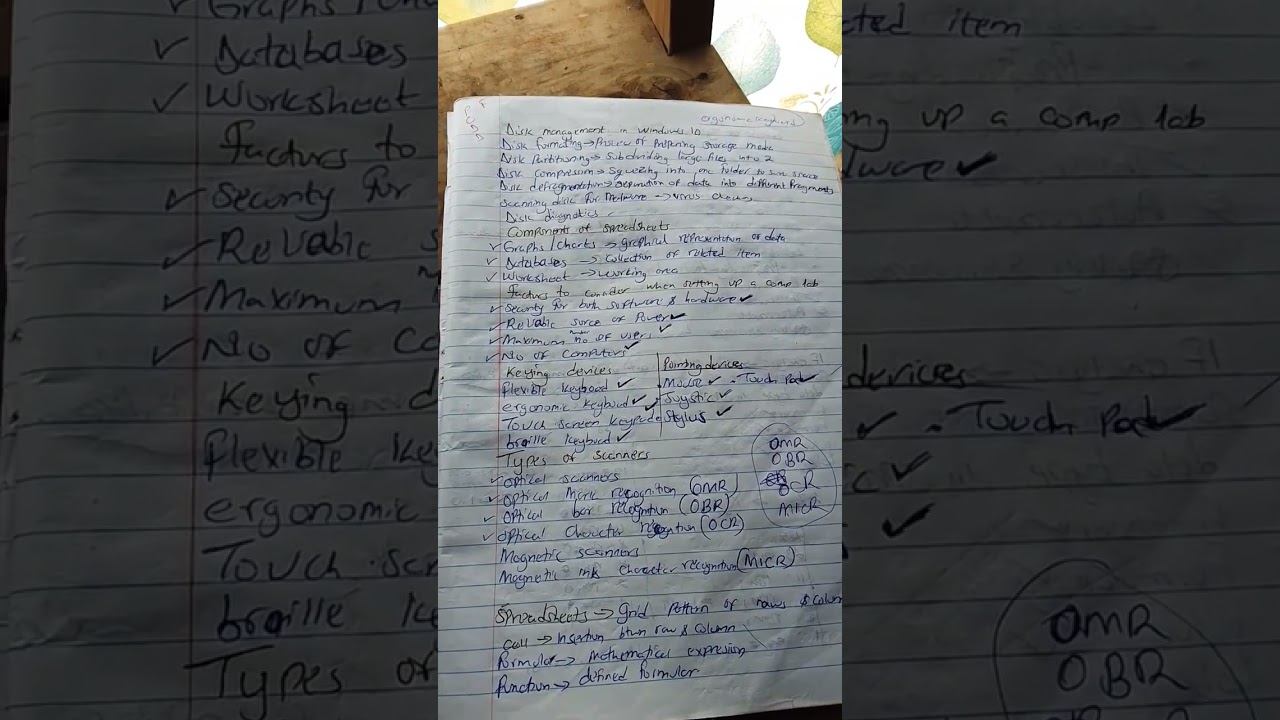 ergonomic keyboard
Disk management in windows 10
Disk formating → Process of preparing storage media
Disk Partitioning → Subdividing large files into 2
Disk compression → Squeezing into one folder to save space
Disk defragmentation → separation of data into different fragments
Scanning disk for malware → virus
Disk diagnotics
Components of spreadsheets
✓ Graphs/charts → graphical representation of data
✓ Databases → Collection of related item
✓ Worksheet → Working area
factors to consider when setting up a comp lab
✓ Security for both software & hardware ✓
✓ Reliable source of Power ✓
✓ Maximum number of users ✓
✓ No of computers ✓
Keying devices
flexible keyboad ✓
ergonomic keyboad ✓
Touch screen
braille keyboad ✓
Pointing devices
Mouse ✓ • Touch Pad ✓
Joystic ✓
Stylus ✓
Types of scanners
✓ optical scanners
✓ optical Mark recognition (OMR)
✓ optical bar recognition (OBR)
✓ optical Character recognition (OCR)
Magnetic scanners
Magnetic ink character recognition (MICR)
OMR
OBR
OCR
MICR
Spreadsheets → grid pattern of rows & column
cell → Insertion btwn row & column
formular → mathematical expression
function → defined formular